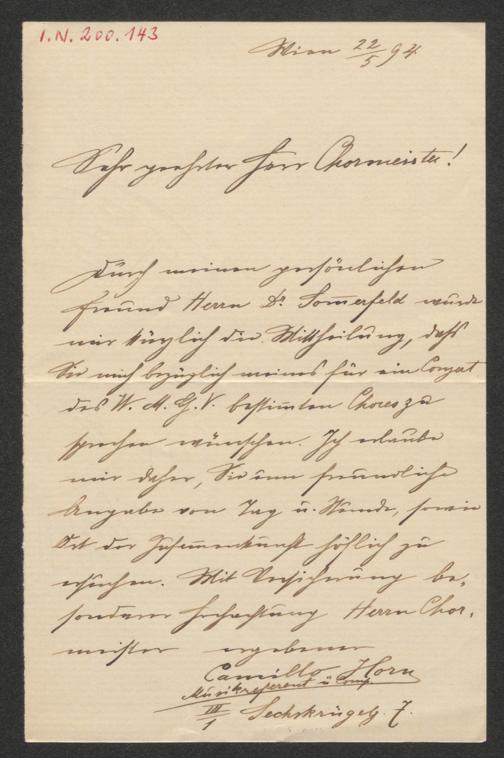 I.N. 200.143
Wien 22/5 94
Sehr geehrter Herr Chormeister!
Durch meinen persönlichen
Freund Herrn Dr. Sommerfeld wurde
mir kürzlich die Mittheilung, daß
Sie mich bezüglich meines für ein Conzert
des W. M. G. V. bestimmten Chores zu
sprechen wünschen. Ich erlaube
mir daher, Sie um freundliche
Angabe von Tag u. Stunde, sowie
Ort der Zusammenkunft höflich zu
ersuchen. Mit Versicherung be-
sonderer Hochachtung Herrn Chor-
meister ergebener
Camillo Horn
Musikreferent u Comp.
III/1 Sechskrügelg. 7.